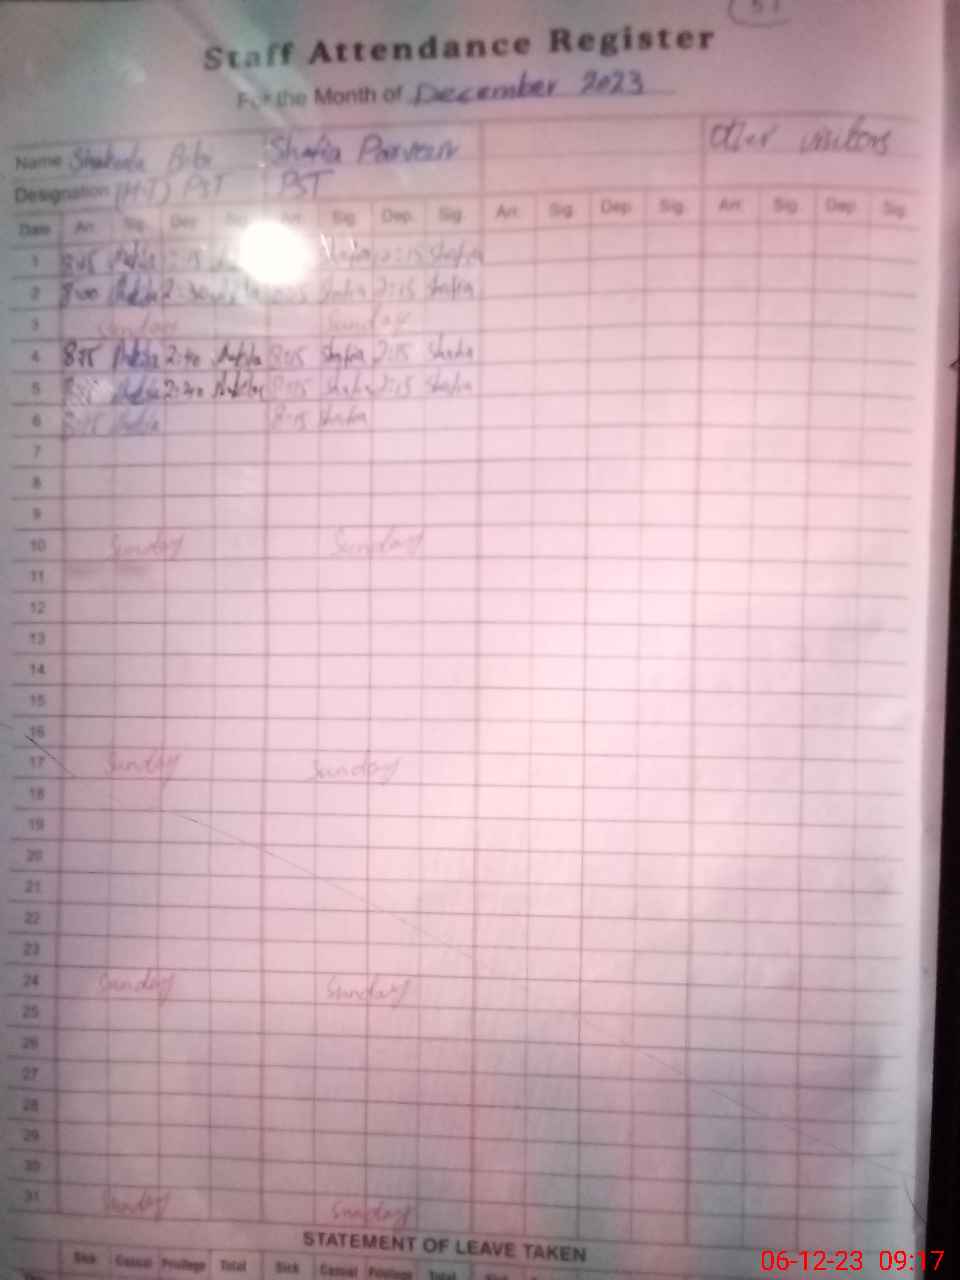 51
Staff Attendance Register
For the Month of December 2023
Name Bibi Shafia Parveen Other visitors
Designation (H.T) PST PST
Date Arr. Sig. Dep. Sig. Arr. Sig. Dep. Sig. Arr. Sig. Dep. Sig. Arr. Sig. Dep. Sig.
1 8:15 2:15 Shafia
2 8:00 8:15 Shafia 2:15 Shafia
3 Sunday Sunday
4 8:15 2:40 8:15 Shafia 2:15 Shafia
5 2:40 8:15 Shafia 2:15 Shafia
6 8:15 8:15 Shafia
7
8
9
10 Sunday Sunday
11
12
13
14
15
16
17 Sunday Sunday
18
19
20
21
22
23
24 Sunday Sunday
25
26
27
28
29
30
31 Sunday Sunday
STATEMENT OF LEAVE TAKEN
Sick Casual Privilege Total Sick Casual Privilege Total
06-12-23 09:17